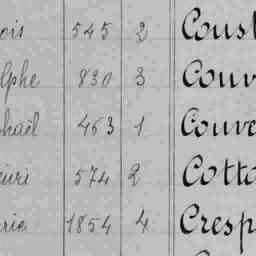 ois 545 2 Coust
lphe 830 3 Couv
haël 453 1 Couve
uri 574 2 Cotto
rie 1854 4 Cresp